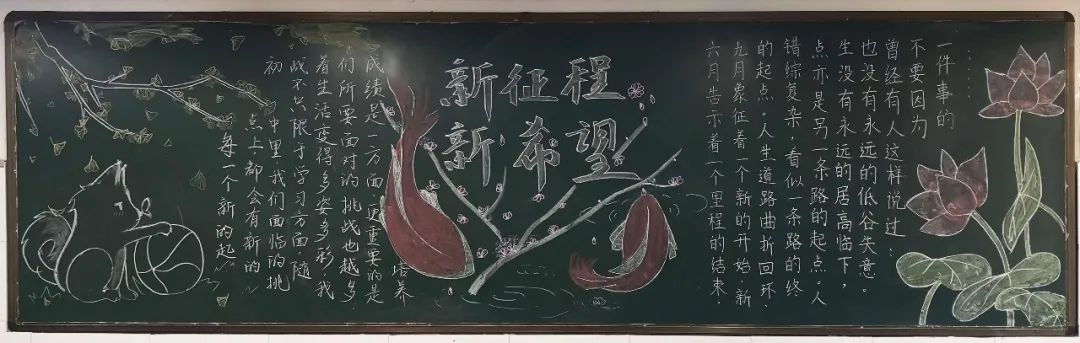 新征程
新希望
每一个新的起
点上都会有新的
初中里我们面临的挑
战不只限于学习方面.随
着生活变得多姿多彩.我
们所要面对的挑战也越多.
成绩是一方面.更重要的是
培养
六月告示着一个里程的结束
九月象征着一个新的开始.新
的起点.人生道路曲折回环.
错综复杂,看似一条路的终
点亦是另一条路的起点.人
生没有永远的居高临下,
也没有永远的低谷失意.
曾经有人这样说过
不要因为
一件事的
......